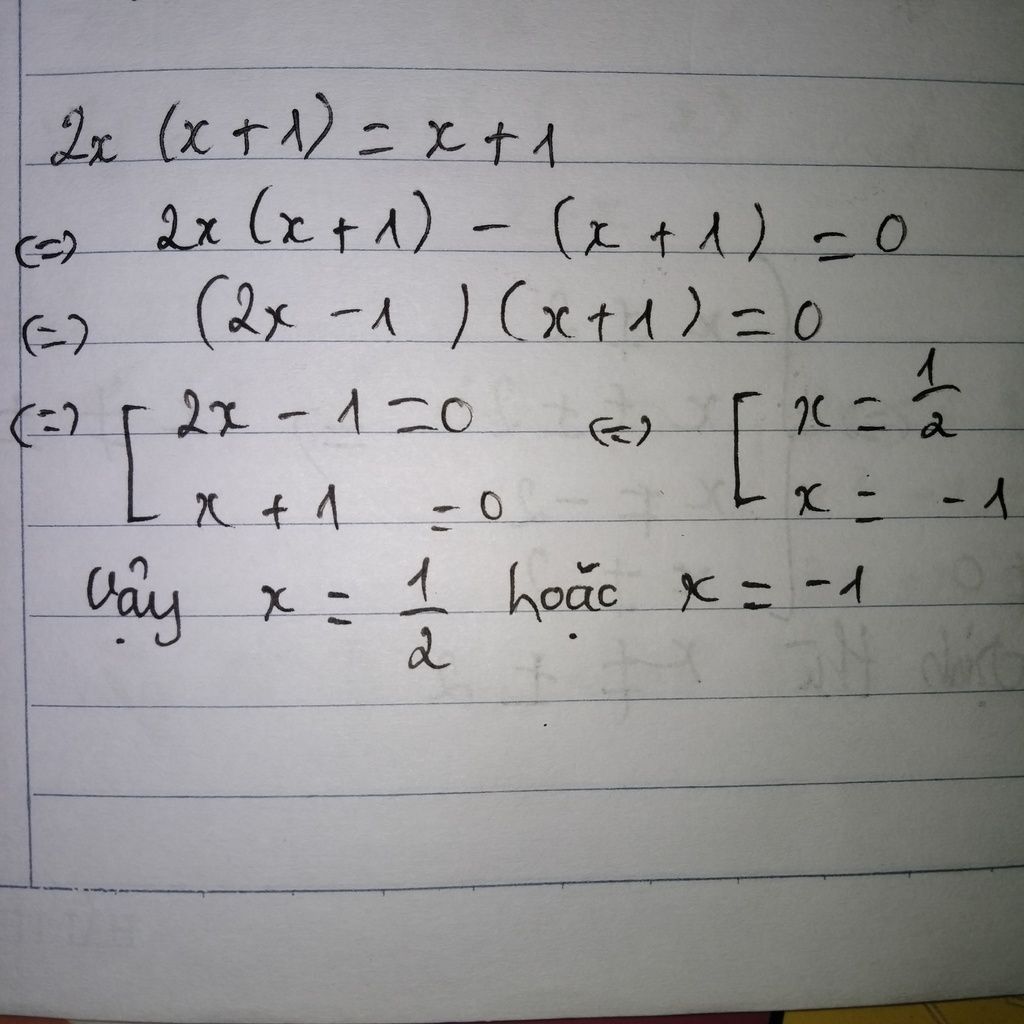 2x (x + 1) = x + 1
(=) 2x (x + 1) - (x + 1) = 0
(=) (2x - 1) (x + 1) = 0
(=) [ 2x - 1 = 0 (=) [ x = 1/2
x + 1 = 0 x = -1
Vậy x = 1/2 hoặc x = -1